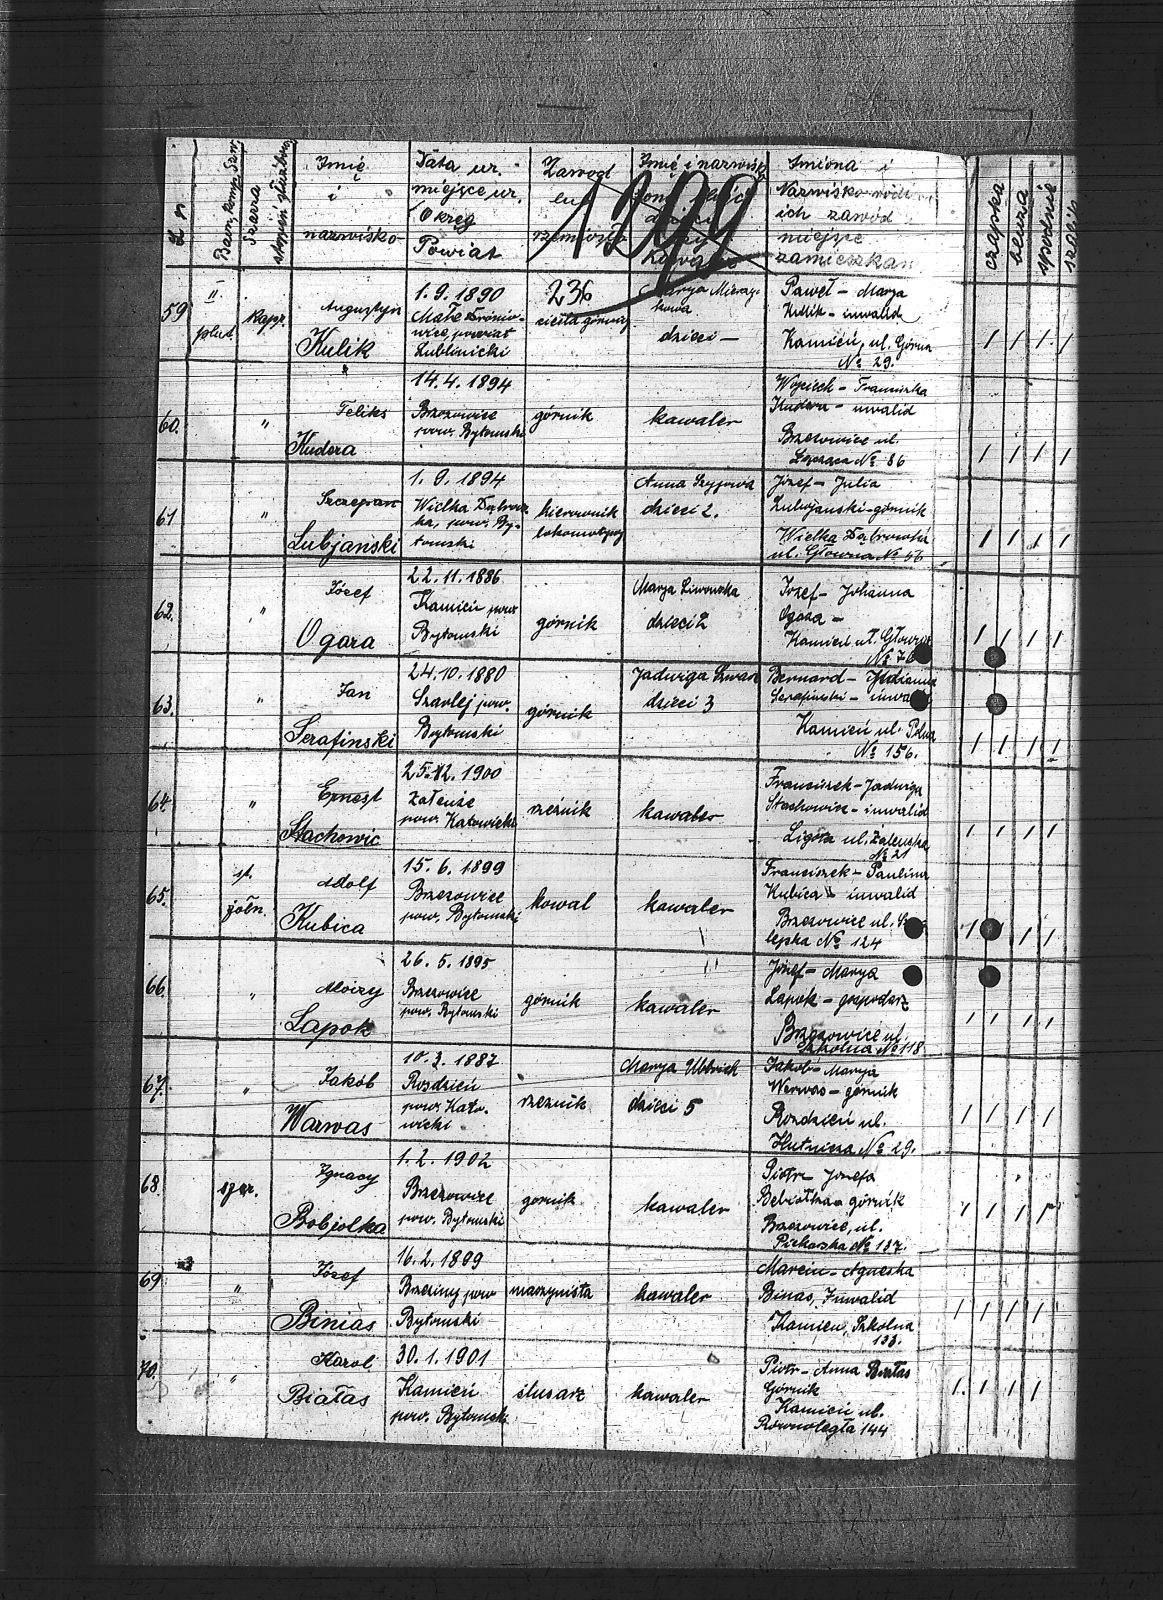 L n
Baon, komp. Szw.
Szarża
stopień służbowy
Imię
i
nazwisko
Data ur.
miejsce ur.
Okręg
Powiat
Zawód
lub
rzemiosło
Imię i nazwisko
żony
dzieci
Imiona i
Nazwisko rodz
ich zawód
miejsce
zamieszkan
czapka
bluza
spodnie
szalik
1399
236
59
II
plut.
kapr.
Augustyn
Kulik
1. 9. 1890
powiat
Lublinicki
cieśla górniczy
Marya
dzieci —
Paweł — Marya
Kulik — inwalid
Kamień, ul. Górna
№ 29.
60.
"
Feliks
Kudera
14. 4. 1894
Brzezowice
pow. Bytomski
górnik
kawaler
Wojciech — Franciszka
Kudera — inwalid
Brzezowice ul.
№ 86
61
"
Szczepan
Lubjanski
1. 9. 1894
Wielka Dąbrow-
ka, pow. By-
tomski
kierownik
lokomotywy
Anna Szyjowa
dzieci 2.
Józef — Julia
Lubojanski — górnik
Wielka Dąbrowka
ul. Głowna № 56
62.
"
Józef
Ogara
22. 11. 1886
Kamień pow.
Bytomski
górnik
Marja
dzieci 2
Jozef — Johanna
Ogaza —
Kamień ul. Głowna
№ 76
63.
"
Jan
Serafinski
24. 10. 1880
Szarlej pow.
Bytomski
górnik
Jadwiga
dzieci 3
Bernard —
Serafinski —
Kamień ul. Polna
№ 156.
64.
"
Ernest
Stachowic
25. 12. 1900
Załenże
pow. Katowicki
rzeźnik
kawaler
Franciszek — Jadwiga
Stachowicz — inwalid
Ligota ul. Zalenska
№ 21
65.
st.
żołn.
Adolf
Kubica
15. 6. 1899
Brzezowice
pow. Bytomski
kowal
kawaler
Franciszek — Paulina
Kubica — inwalid
Brzezowice ul.
№ 124
66.
"
Alojzy
Lapok
26. 5. 1895
Brzezowice
pow. Bytomski
górnik
kawaler
Józef — Marya
Lapok — gospodarz
Brzezowice ul.
Szkolna № 118
67.
"
Jakób
Warwas
10. 3. 1887
Rozdzień
pow. Kato-
wicki
rzeźnik
Marya Ulbrich
dzieci 5
Jakób — Marya
Werwas — górnik
Rozdzień ul.
Hutnicza № 29.
68.
szer.
Ignacy
Bobjolka
1. 2. 1902
Brzezowice
pow. Bytomski
górnik
kawaler
Piotr Jozefa
Bebiolka — górnik
Brzezowice, ul.
Piekarska № 137.
69
"
Józef
Binias
16. 2. 1899
Brzeziny pow
Bytomski
maszynista
kawaler
Marcin — Agnieska
Binas, Inwalid
Kamien, Szkolna
133.
70.
"
Karol
Białas
30. 1. 1901
Kamień
pow. Bytomski
ślusarz
kawaler
Piotr — Anna Białas
Górnik
Kamień ul.
Równoległa 144